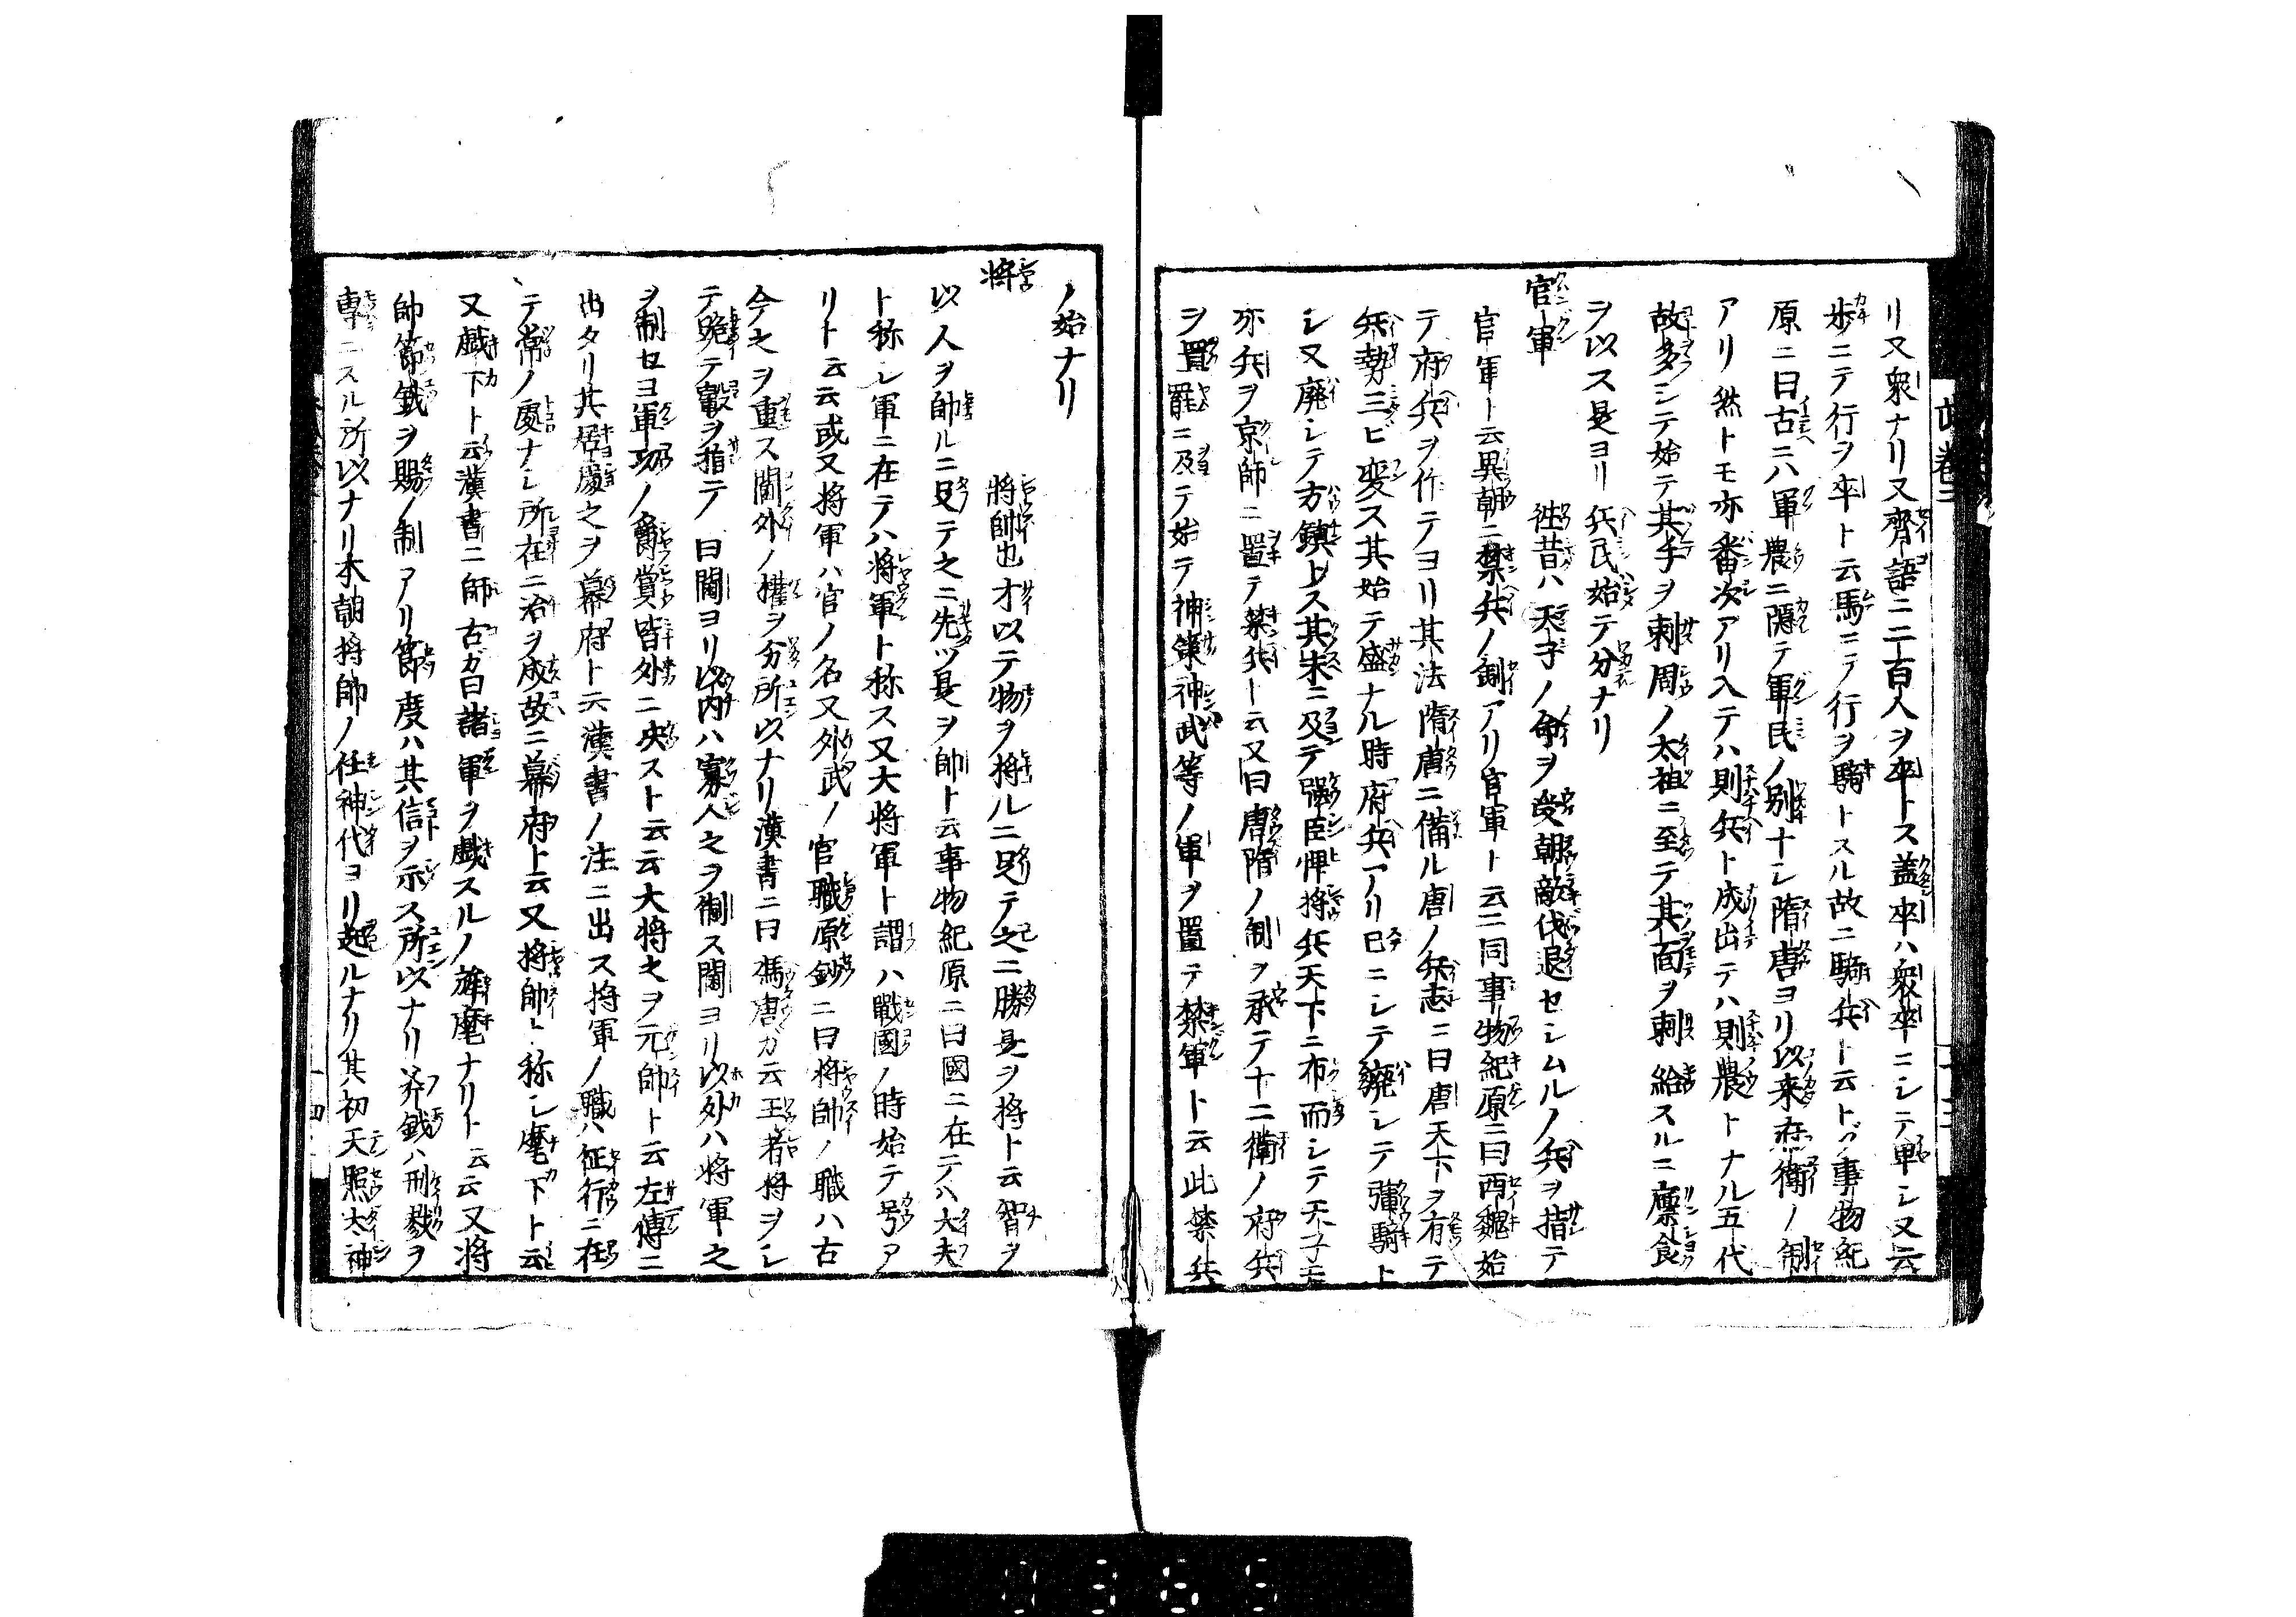 リ又衆ナリ又齊語ニ二百人ヲ卒トス蓋卒ハ衆卒ニシテ單シ又云
歩ニテ行ヲ卒ト云馬ニテ行ヲ騎トスル故ニ騎兵ト云トゾ事物紀
原ニ曰古ニハ軍農ニ隱テ軍民ノ別ナシ隋唐ヨリ以来府衛ノ制
アリ然トモ亦番次アリ入テハ則兵ト成出テハ則農トナル五代
故多シテ始テ其手ヲ刺周ノ太祖ニ至テ其面ヲ刺給スルニ廩食
ヲ以ス是ヨリ兵民始テ分ナリ
官軍 徃昔ハ天子ノ命ヲ受朝敵伐退セシムルノ兵ヲ指テ
官軍ト云異朝ニ禁兵ノ制アリ官軍ト云ニ同事物紀原ニ曰西魏始
テ府兵ヲ作テヨリ其法隋唐ニ備ル唐ノ兵志ニ曰唐天下ヲ有テ
兵勢三ヒ変ス其始テ盛ナル時府兵アリ已ニシテ廢シテ彍騎ト
シ又廃シテ方鎮トス其末ニ及テ强臣悍将兵天下ニ布而シテ天子モ
亦兵ヲ京師ニ置テ禁兵ト云又曰唐隋ノ制ヲ承テ十二衛ノ府兵
ヲ置罷ニ及テ始テ神策神武等ノ軍ヲ置テ禁軍ト云此禁兵
ノ始ナリ
将 将帥也才以テ物ヲ将ルニ足テ之ニ勝是ヲ将ト云智ヲ
以人ヲ帥ルニ足テ之ニ先ツ是ヲ帥ト云事物紀原ニ曰國ニ在テハ大夫
ト称シ軍ニ在テハ将軍ト称ス又大将軍ト謂ハ戰國ノ時始テ号ア
リト云云或又将軍ハ官ノ名又外武ノ官職原鈔ニ曰将帥ノ職ハ古
今之ヲ重ス閫外ノ權ヲ分所以ナリ漢書ニ曰馮唐カ云王者将ヲシ
テ跪テ轂ヲ指テ曰閫ヨリ以内ハ寡人之ヲ制ス閫ヨリ以外ハ将軍之
ヲ制セヨ軍功ノ爵賞皆外ニ央スト云云大将之ヲ元帥ト云左傳ニ
出タリ其居處之ヲ幕府ト云漢書ノ注ニ出ス将軍ノ職ハ征行ニ在
テ常ノ處ナシ所在ニ治ヲ成故ニ幕府ト云又将帥ト称シ麾下ト云
又戲下ト云漢書ニ師古ガ曰諸軍ヲ戲スルノ旌麾ナリト云云又将
帥節鉞ヲ賜ノ制アリ節度ハ其信ヲ示ス所以ナリ斧鉞ハ刑戮ヲ
専ニスル所以ナリ本朝将帥ノ任神代ヨリ起ルナリ其初天照太神